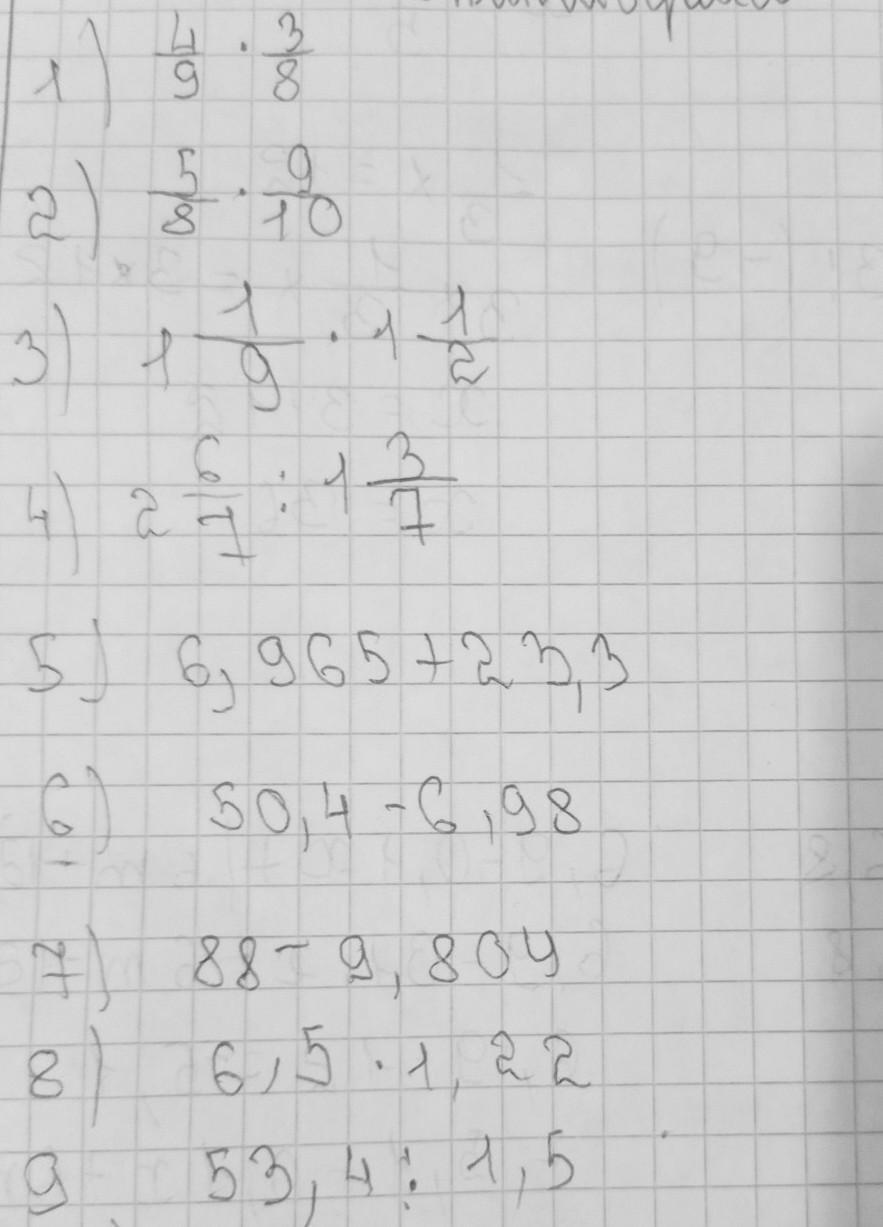 1) 4/9 · 3/8
2) 5/8 · 9/10
3) 1 1/9 · 1 1/2
4) 2 6/7 : 1 3/7
5) 6,965+23,3
6) 50,4-6,98
7) 88-9,804
8) 6,5·1,22
9 53,4:1,5